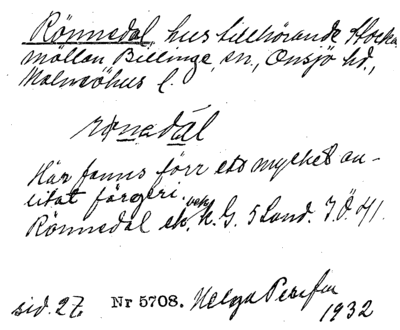 Rönnsdal, hus tillhörande Stocka
möllan Billinge sn, Onsjö hd.,
Malmöhus l.
Här fanns förr ett mycket an-
litat färgeri.
Rönnsdal ek. K. G. 5 Land. I. Ö 41.
sid. 27. Nr 5708. Helga
1932